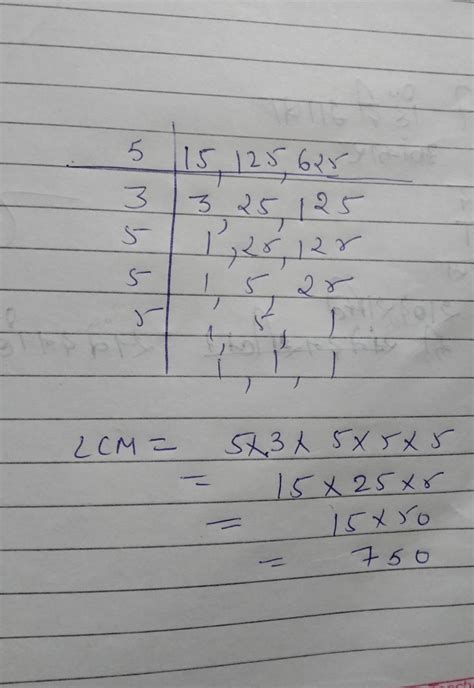 5 | 15, 125, 625
3 | 3, 25, 125
5 | 1, 25, 125
5 | 1, 5, 25
5 | 1, 5, 1
1, 1, 1
LCM = 5 x 3 x 5 x 5 x 5
= 15 x 25 x 5
= 15 x 50
= 750